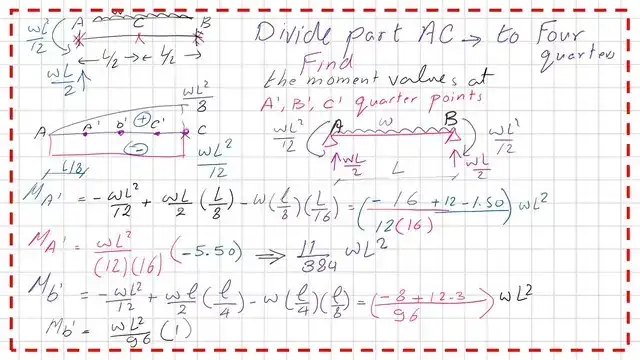 A C B
wL²/12
L/2 L/2
wL/2
Divide part AC → to Four quarters
Find
the moment values at
A', B', C' quarter points
wL²/8
A A' b' C' C
+
−
L/8
wL²/12
A w B
wL²/12 wL²/12
wL/2 L wL/2
M_A' = -wL²/12 + wL/2 (L/8) - w(l/8)(L/16) = (-16 + 12 - 1.50 / 12(16)) wL²
M_A' = wL²/(12)(16) (-5.50) ⟹ 11/384 wL²
M_b' = -wL²/12 + wl/2 (l/4) - w(l/4)(l/8) = (-8 + 12 - 3 / 96) wL²
M_b' = wL²/96 (1)